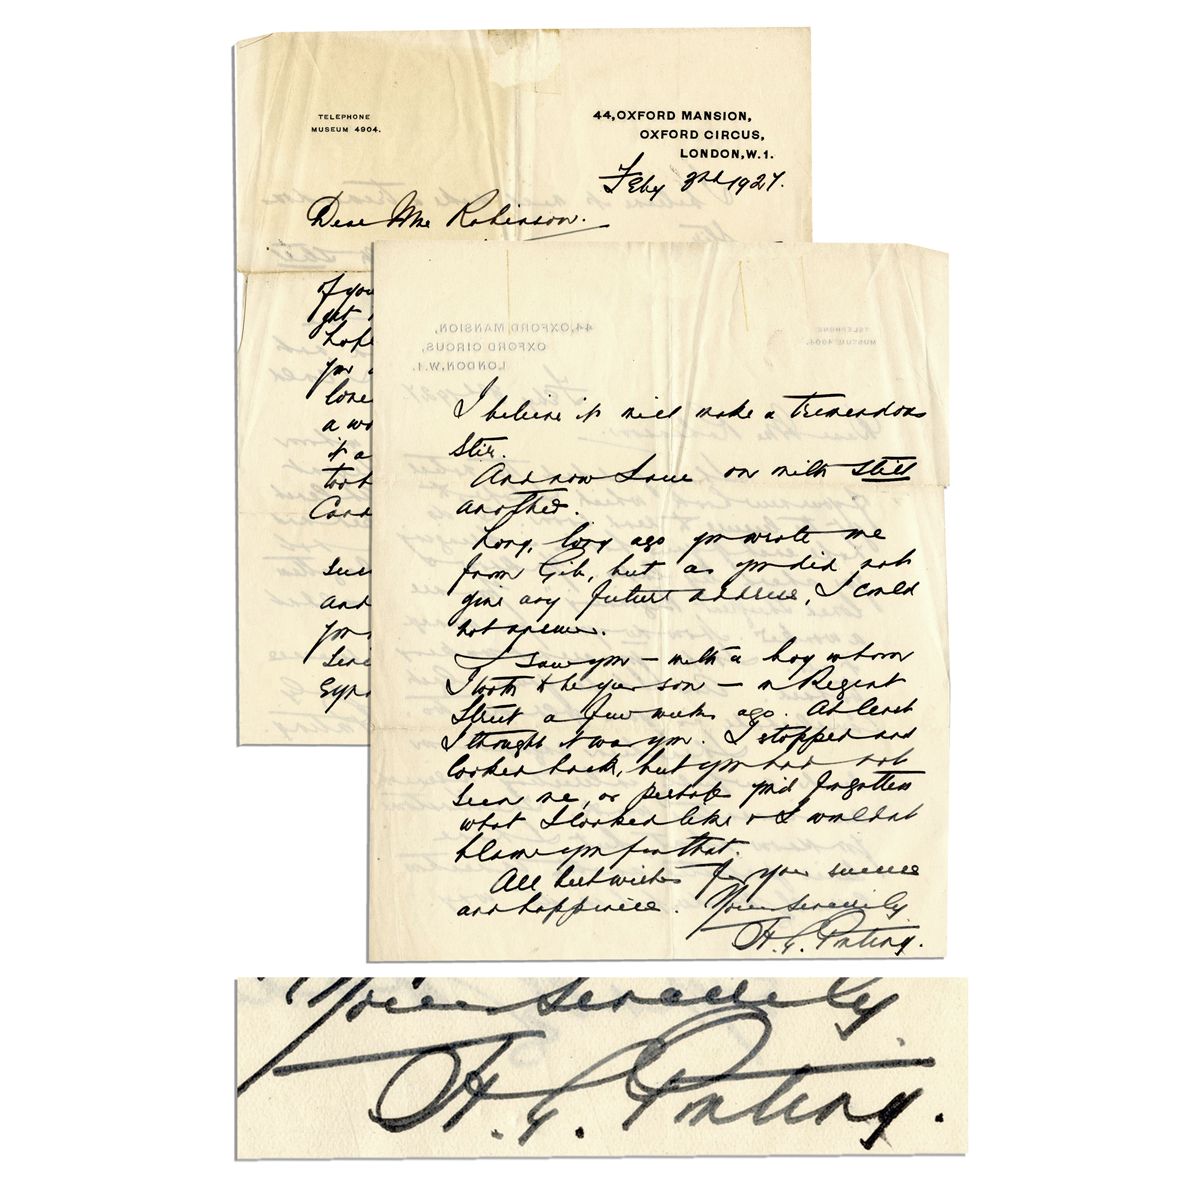 TELEPHONE
MUSEUM 4904.
44, OXFORD MANSION,
OXFORD CIRCUS,
LONDON, W.1.
Feby 2nd 1927.
Dear Mr Robinson.
If you
get
hope
your
love
a wo
it a
took
Cand
succ
and
your
Seri
Expr
I believe it will make a tremendous
stir.
And now I am on with still
another.
Long, long ago you wrote me
from Gib, but as you did not
give any future address, I could
not answer.
I saw you – with a boy whom
I took to be your son – in Regent
Street a few weeks ago. At least
I thought it was you. I stopped and
looked back, but you had not
seen me, or perhaps you'd forgotten
what I looked like & I wouldn't
blame you for that.
All best wishes for your success
and happiness. Yours sincerely
H. G. Ponting.
Yours sincerely
H. G. Ponting.